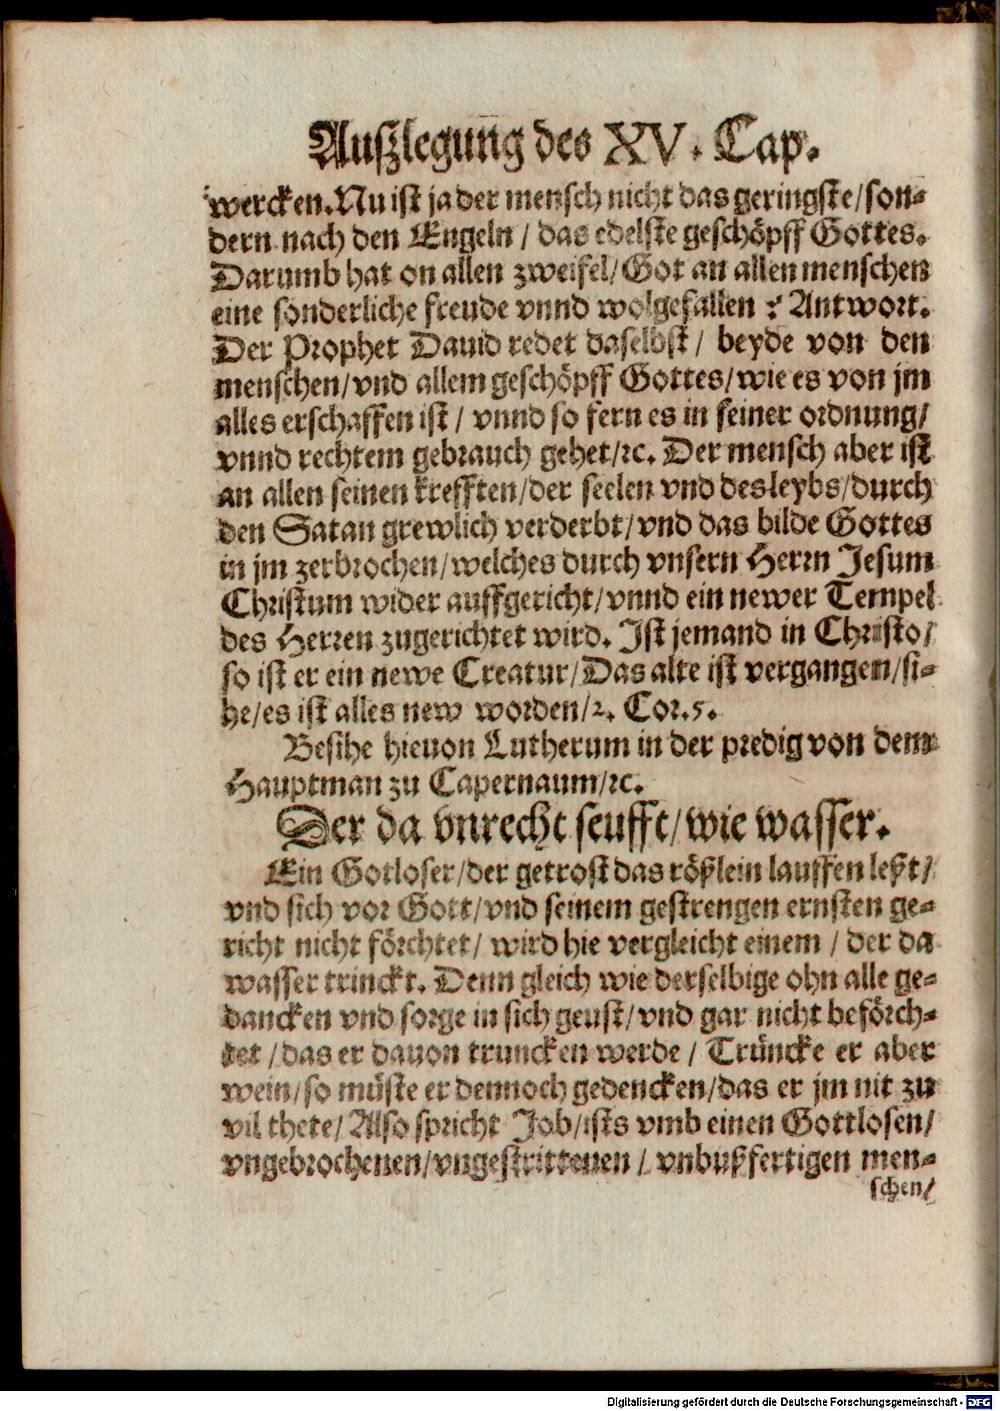 Auſzlegung des XV. Cap.
wercken. Nu iſt ja der menſch nicht das geringſte/ ſon⸗
dern nach den Engeln / das edelſte geſchöpff Gottes.
Darumb hat on allen zweifel/ Got an allen menſchen
eine ſonderliche freude vnnd wolgefallen ? Antwort.
Der Prophet Dauid redet daſelbſt / beyde von den
menſchen/ vnd allem geſchöpff Gottes/ wie es von jm
alles erſchaffen iſt / vnnd ſo fern es in ſeiner ordnung/
vnnd rechtem gebrauch gehet/ ꝛc. Der menſch aber iſt
an allen ſeinen krefften/ der ſeelen vnd des leybs/ durch
den Satan grewlich verderbt/ vnd das bilde Gottes
in jm zerbrochen/ welches durch vnſern Herrn Jeſum
Chriſtum wider auffgericht/ vnnd ein newer Tempel
des Herren zugerichtet wird. Iſt jemand in Chriſto/
ſo iſt er ein newe Creatur/ Das alte iſt vergangen/ ſi⸗
he/ es iſt alles new worden/ 2. Cor. 5.
Beſihe hieuon Lutherum in der predig von dem
Hauptman zu Capernaum/ ꝛc.
Der da vnrecht ſeufft/ wie waſſer.
Ein Gotloſer/ der getroſt das rößlein lauffen leſt/
vnd ſich vor Gott/ vnd ſeinem geſtrengen ernſten ge⸗
richt nicht förchtet/ wird hie vergleicht einem / der da
waſſer trinckt. Denn gleich wie derſelbige ohn alle ge⸗
dancken vnd ſorge in ſich geuſt/ vnd gar nicht beförch⸗
tet / das er dauon truncken werde / Trüncke er aber
wein/ ſo müſte er dennoch gedencken/ das er jm nit zu
vil thete/ Alſo ſpricht Job/ iſts vmb einen Gottloſen/
vngebrochenen/ vngeſtrittenen / vnbußfertigen men⸗
ſchen/
Digitalisierung gefördert durch die Deutsche Forschungsgemeinschaft - DFG